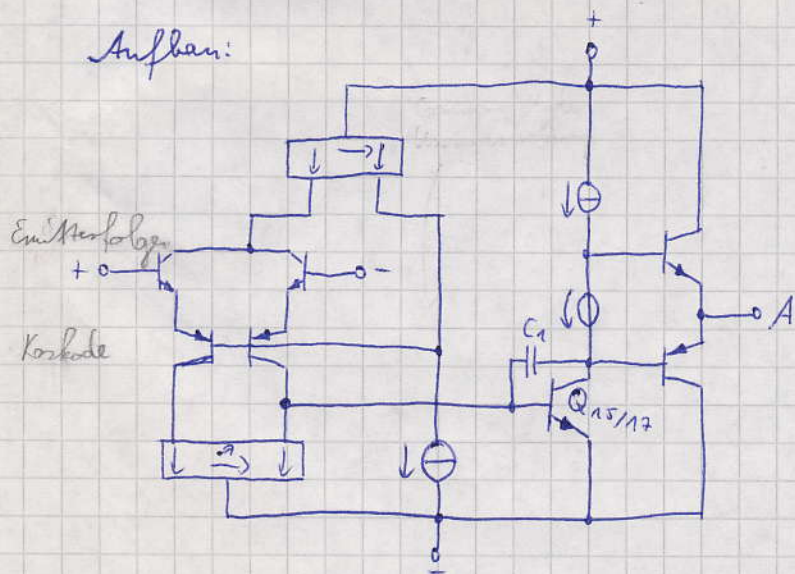 Aufbau:
+
Emitterfolger
+
-
Kaskode
C1
A
Q15/17
-